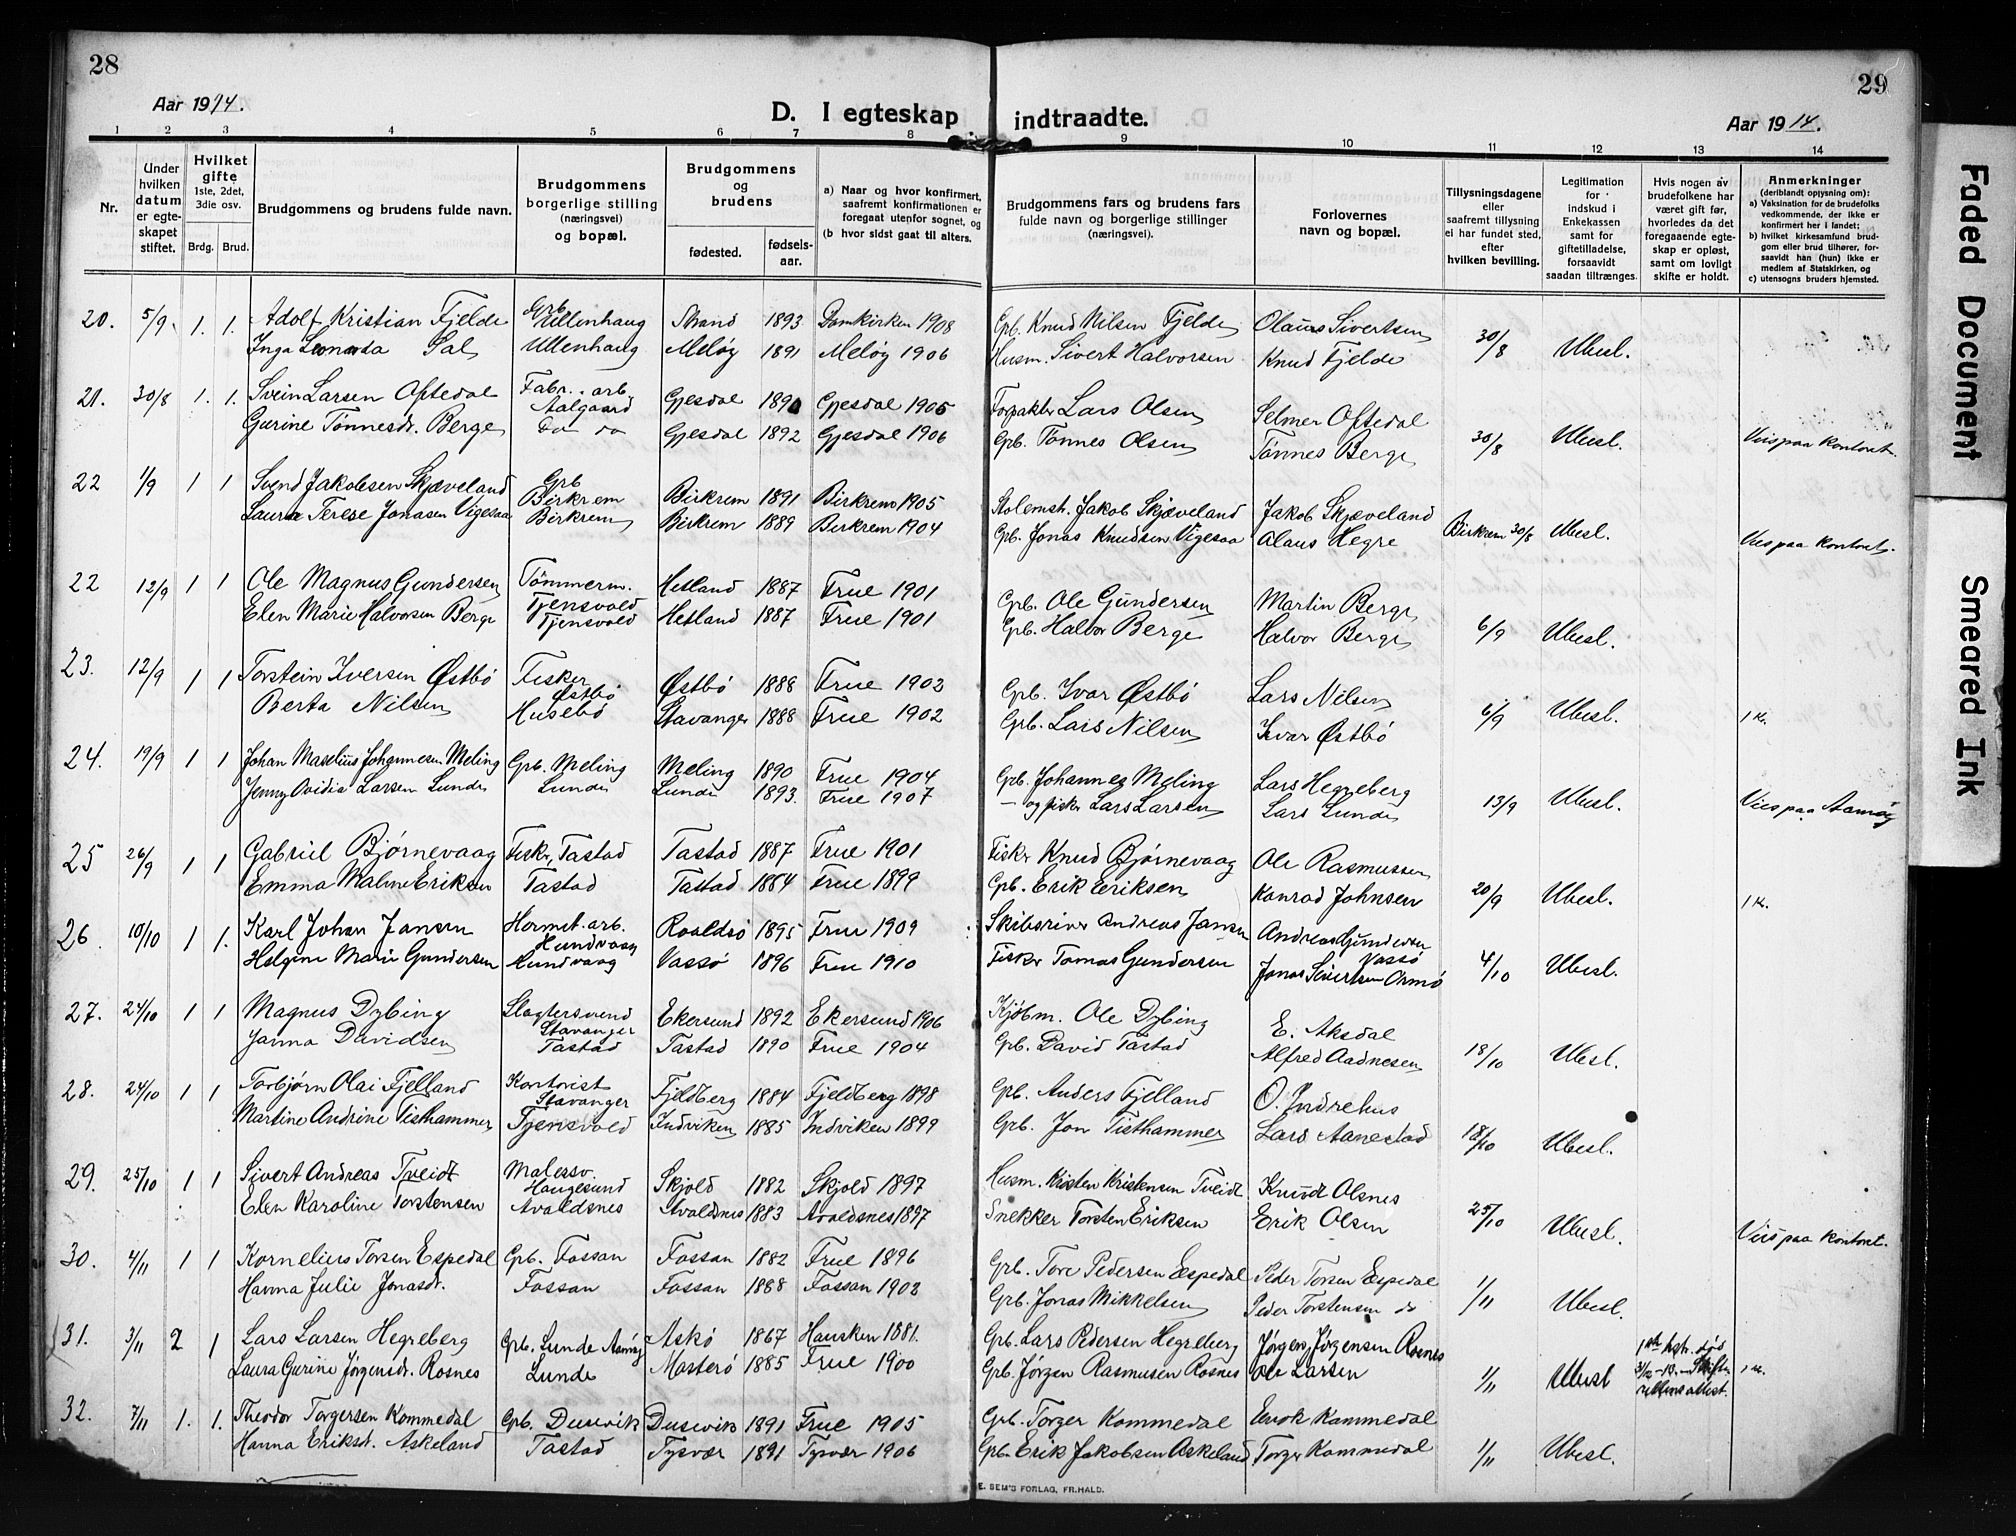 28
29
Aar 1914.
D. I egteskap indtraadte.
Aar 1914.
1 2 3 4 5 6 7 8 9 10 11 12 13 14
Nr.
Under hvilken datum er egte- skapet stiftet.
Hvilket gifte 1ste, 2det, 3die osv.
Brdg. Brud.
Brudgommens og brudens fulde navn.
Brudgommens borgerlige stilling (næringsvei) og bopæl.
Brudgommens og brudens
fødested.
fødsels- aar.
a) Naar og hvor konfirmert, saafremt konfirmationen er foregaat utenfor sognet, og
(b hvor sidst gaat til alters.
Brudgommens fars og brudens fars fulde navn og borgerlige stillinger (næringsvei).
Forlovernes navn og bopæl.
Tillysningsdagene eller saafremt tillysning ei har fundet sted, efter hvilken bevilling.
Legitimation for indskud i Enkekassen samt for giftetilladelse, forsaavidt saadan tiltrænges.
Hvis nogen av brudefolkene har været gift før, hvorledes da det foregaaende egte- skap er opløst, samt om lovligt skifte er holdt.
Anmerkninger (deriblandt oplysning om):
a) Vaksination for de brudefolks vedkommende, der ikke er konfirmert her i landet;
b) hvilket kirkesamfund brud- gom eller brud tilhører, for- saavidt han (hun) ikke er medlem af Statskirken, og
c) utensogns bruders hjemsted.
20. 5/9 1. 1. Adolf Kristian Fjelde Grb Ullenhaug Strand 1893 Domkirken 1908 Gpb. Knud Nilsen Fjelde Olaus Sivertsen 30/8 Ubesl.
Inga Leonarda Sal Ullenhaug Meløy 1891 Meløy 1906 Husm. Sivert Halvorsen Knud Fjelde
21. 30/8 1. 1. Svein Larsen Oftedal Fabr. arb. Aalgaard Gjesdal 1890 Gjesdal 1905 Forpakter Lars Olsen Selmer Oftedal 30/8 Ubesl. Vies paa kontoret.
Gurine Tønnesdr. Berge do do Gjesdal 1892 Gjesdal 1906 Gpb. Tønnes Olsen Tønnes Berge
22 1/9 1 1 Svend Jakobsen Skjæveland Grb Birkrem Birkrem 1891 Birkrem 1905 Stolemsk. Jakob Skjæveland Jakob Skjæveland Birkrem 30/8 Ubesl. Vies paa kontoret.
Laura Terese Jonasen Vigesaa Birkrem Birkrem 1889 Birkrem 1904 Gpb. Jonas Knudsen Vigesaa Olaus Hegre
22 12/9 1 1 Ole Magnus Gundersen Tømmerm. Tjensvold Hetland 1887 Frue 1901 Gpb. Ole Gundersen Martin Berge 6/9 Ubesl.
Elen Marie Halvorsen Berge Tjensvold Hetland 1887 Frue 1901 Gpb. Halvor Berge Halvor Berge
23. 12/9 1 1 Torstein Iversen Østbö Fisker Østbö Østbö 1888 Frue 1902 Gpb. Ivar Østbö Lars Nilsen 6/9 Ubesl. 1 K.
Berta Nilsen Husebö Stavanger 1888 Frue 1902 Gpb. Lars Nilsen Ivar Østbö
24. 19/9 1 1 Johan Maselius Johannesen Meling Gpb. Meling Meling 1890 Frue 1904 Gpb. Johannes Meling Lars Hegreberg 13/9 Ubesl. Vies paa Aamøy
Jenny Ovidia Larsen Lunde Lunde Lunde 1893. Frue 1907 – og fisker Lars Larsen Lars Lunde
25 26/9 1 1 Gabriel Bjørnevaag Fisker, Tastad Tastad 1887 Frue 1901 Fisker Knud Bjørnevaag Ole Rasmussen 20/9 Ubesl. 1 K.
Emma Maline Eriksen Tastad Tastad 1884 Frue 1899 Gpb. Erik Eriksen Konrad Johnsen
26. 10/10 1 1. Karl Johan Jansen Hermet. arb. Hundvaag Roaldsö 1895 Frue 1909 Skibsriver Andreas Jansen Andreas Gundersen Vassö 4/10 Ubesl.
Helgine Marie Gundersen Hundvaag Vassö 1896 Frue 1910 Fisker Tomas Gundersen Jonas Sivertsen Ormö
27. 24/10 1 1 Magnus Dybing Slagtersvend Stavanger Ekersund 1892 Ekersund 1906 Kjøbm. Ole Dybing E. Aksdal 18/10 Ubesl.
Janna Davidsen Tastad Tastad 1890 Frue 1904 Gpb. David Tastad Alfred Aadnesen
28. 24/10 1 1 Torbjørn Olai Fjelland Kontorist Stavanger Fjeldberg 1884 Fjeldberg 1898 Gpb. Anders Fjelland O. Indrehus 18/10 Ubesl.
Martine Andrine Tisthammer Tjensvold Indviken 1885 Indviken 1899 Gpb. Jon Tisthammer Lars Aanestad
29. 25/10 1 1 Sivert Andreas Tveidt Malersv. Haugesund Skjold 1882 Skjold 1897 Husm. Kristen Kristensen Tveidt Knudt Olsnes 25/10 Ubesl. Vies paa kontoret.
Elen Karoline Torstensen Avaldsnes Avaldsnes 1883 Avaldsnes 1897 Snekker Torsten Eriksen Erik Olsen
30. 4/11 1 1 Kornelius Torsen Espedal Gpb. Fossan Fossan 1882 Frue 1896 Gpb. Tore Pedersen Espedal Peder Torsen Espedal 1/11 Ubesl.
Hanna Julie Jonasdr. Fossan Fossan 1888 Fossan 1902 Gpb. Jonas Mikkelsen Peder Torstensen do
31. 3/11 2 1 Lars Larsen Hegreberg Gpb. Lunde Aamøy Askö 1867 Hausken 1881. Gpb. Lars Pedersen Hegreberg Jørgen Jørgensen Rosnes 1/11 Ubesl 1ste egt. død 3/12-13. - Skifterettens attest. 1 K.
Laura Gurine Jørgensdr. Rosnes Lunde Masterö 1885 Frue 1900 Gpb. Jørgen Rasmusen Rosnes Ole Larsen
32. 7/11 1. 1. Theodor Torgersen Kommedal Gpb. Dusevik Dusevik 1891 Frue 1905 Gpb. Torger Kommedal Enok Kommedal 1/11 Ubesl.
Hanna Eriksdr. Askeland Tastad Tysvær 1891 Tysvær 1906 Gpb. Erik Jakobsen Askeland Torger Kommedal
E. SEM'S FORLAG, FR.HALD.
Faded Document
Smeared Ink